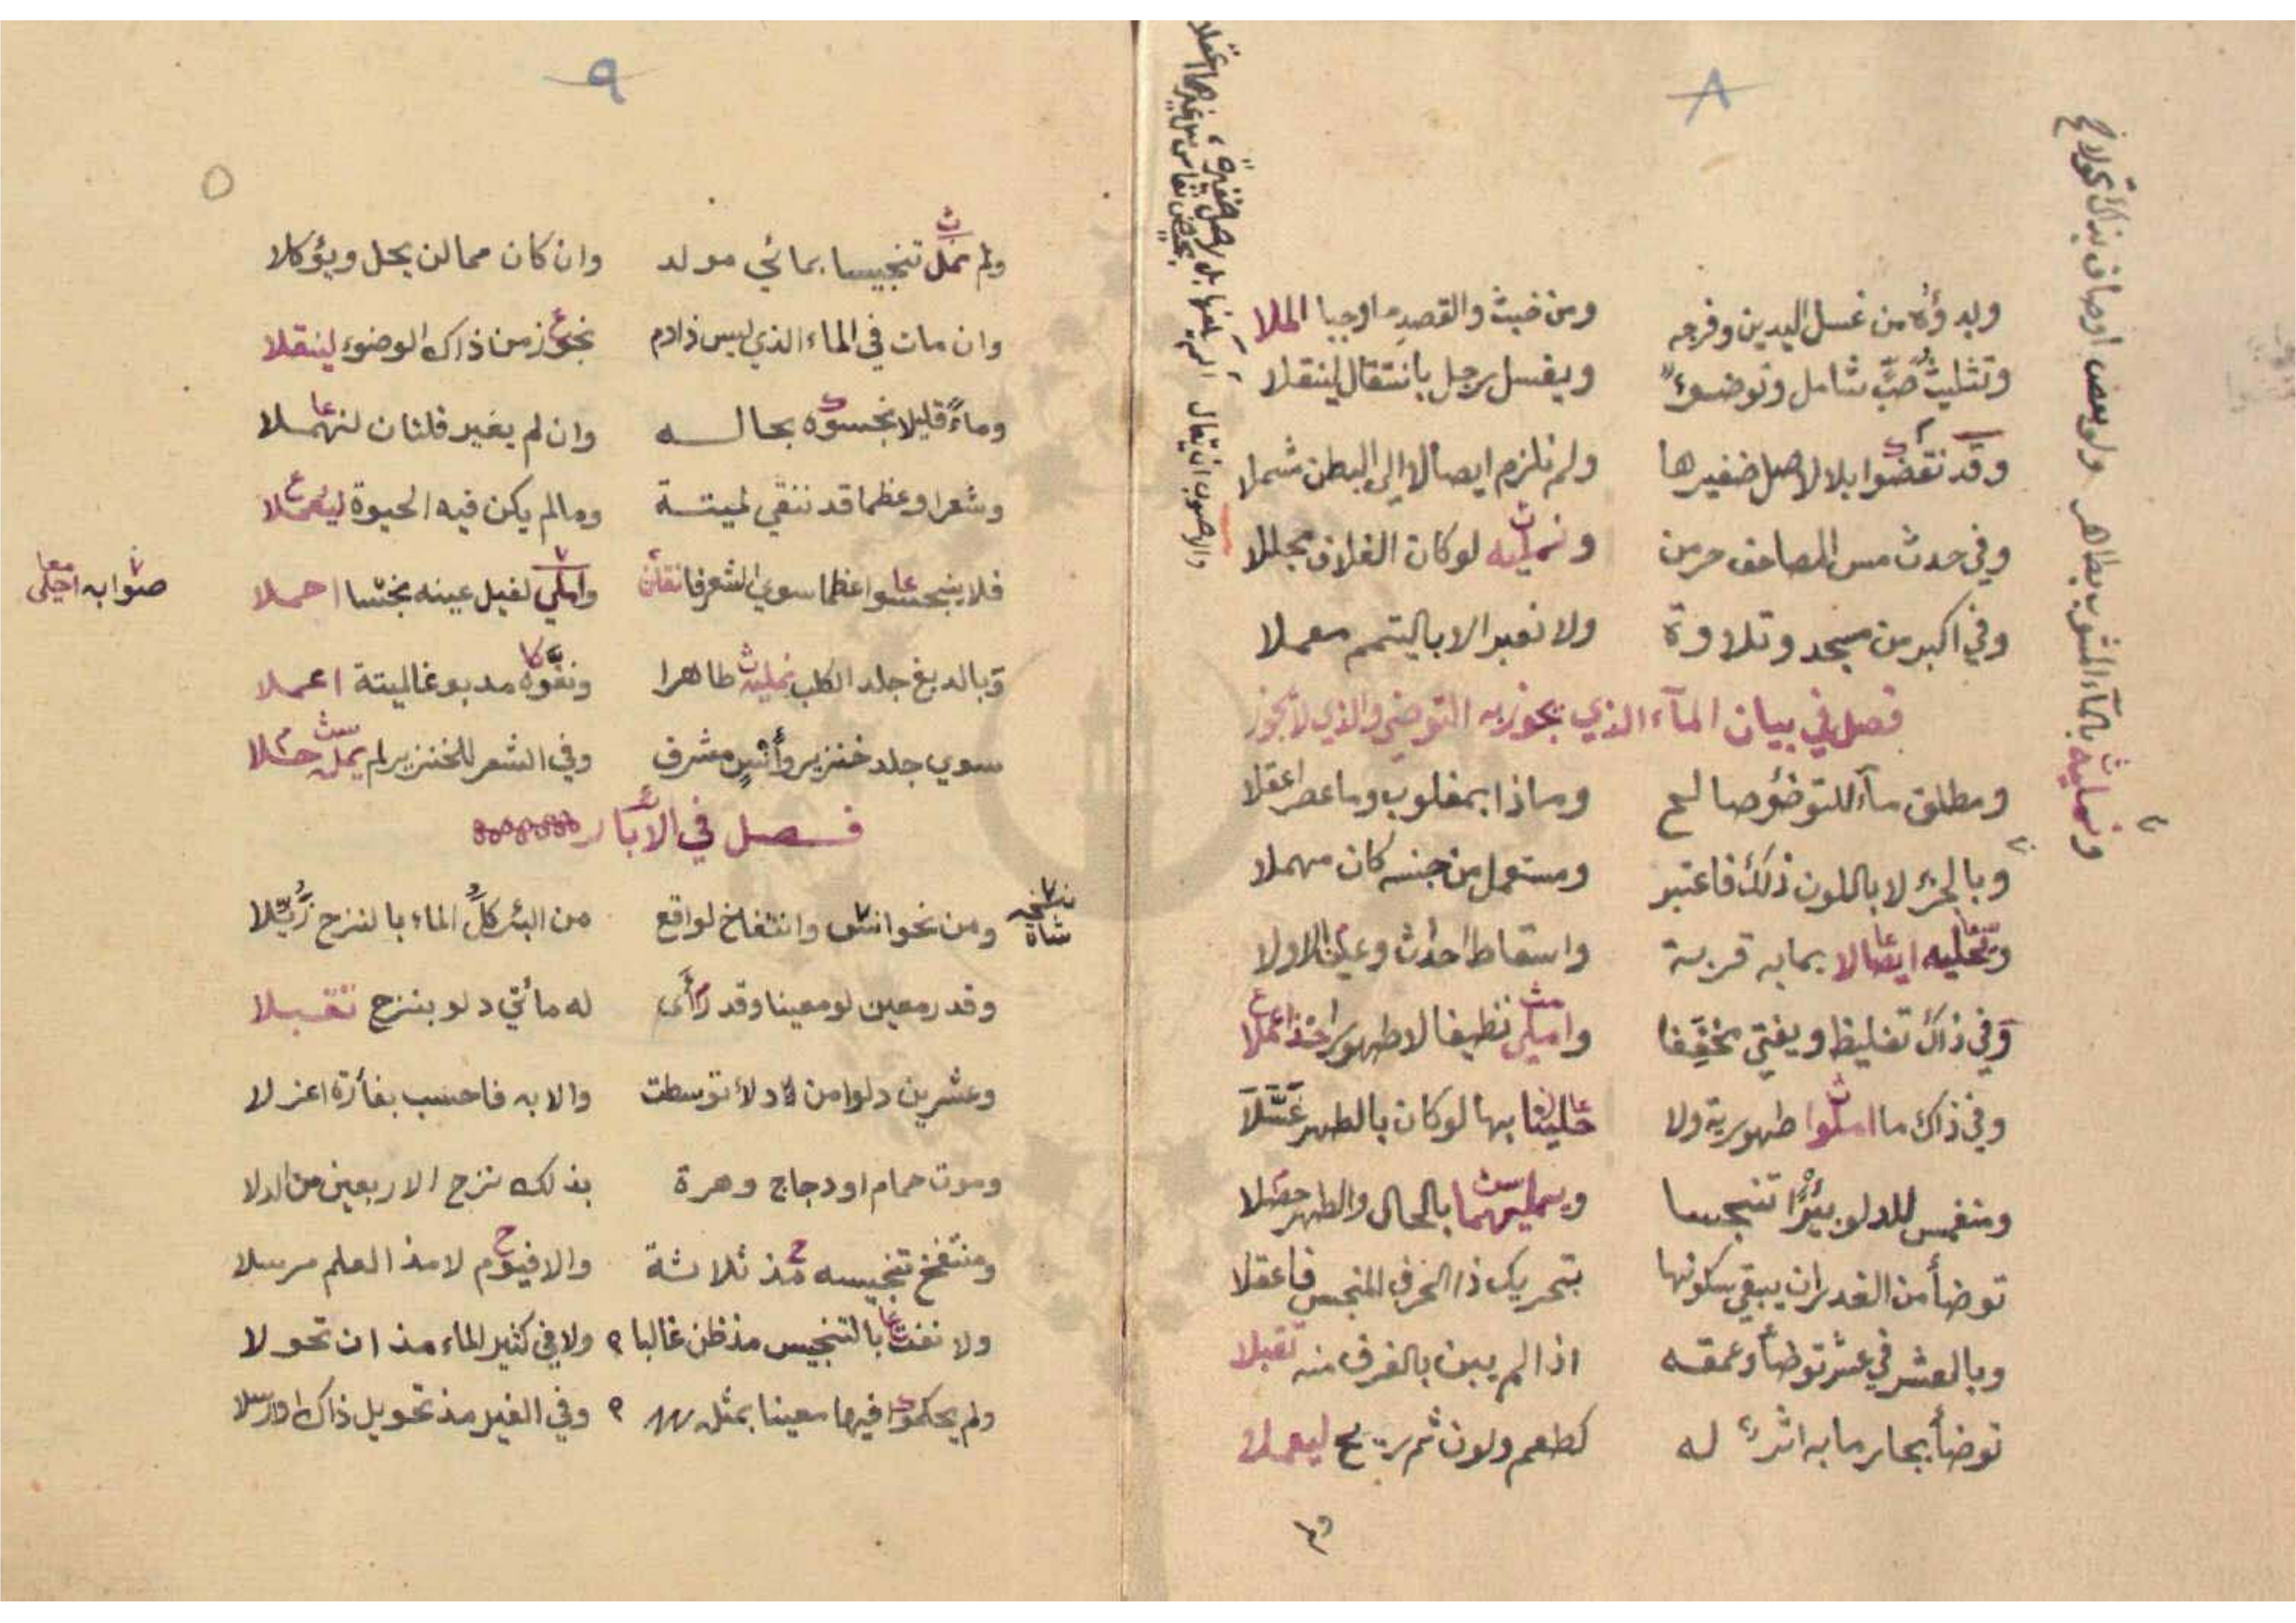 ٨
وبدؤه من غسل اليدين وفرجه ومن خبث والقصد ما اوجبا الملا
وتثليث صب شامل وتوضوء ويغسل رجل بانتقال لينقلا
وقد نقضوا بلا لاصل ضفيرها ولم نلزم ايصالا الى البطن شملا
وفي حدث مس المصاحف حرمن ونمليه لوكان الغلاف مجللا
وفي اكبر من مسجد وتلاوة ولا نعبر الا باليتمم معملا
فصل في بيان المآء الذي يجوز به التوضي والذي لا يجوز
ومطلق مآء للتوضؤ صالح وماذا بمغلوب وما عصر اعقلا
وبالجزء لا باللون ذلك فاعتبر ومستعمل من جنسه كان مهملا
ايصالا بما به قربة واسقاط احداث الاولا
وفي ذاك تغليظ ويفتى مخففا وامیلی تنظيفا لا طهورا
وفي ذاك ما املوا طهورية ولا بها لوكان بالطهر غسلا
ومنغمس للدلو بئرا تنجسا بالحال والطهر حصلا
توضأ من الغدران يبقى سكونها بتحريك ذا الخرف المنجس فاعقلا
وبالعشر في عشر توضأ وعمقه اذا لم يبن بالغرف منه تقبلا
توضأ بجار ما به اثر له كطعم ولون ثم ريح ليعملا
ونمليه بالمآء المشوب بطاهر ولو بعض اوصاف بذاك تحولا
والاصوب ان يقال
٩
ولم نمل تنجيسا بمائي مولد وان كان مما لن يحل ويؤكلا
وان مات في الماء الذي ليس ذا دم نجوز من ذاك الوضوء لينقلا
وماء قليلا نجسوه بحاله وان لم يغير قلتان لنهملا
وشعرا وعظما قد ننقي لميتة وما لم يكن فيه الحيوة ليعملا
فلا ينجسوا عظما سوى الشعر فانقلن واملي لفيل عينه نجسا احملا
صوابه
وبالدبغ جلد الكلب نمليه طاهرا ونقوه مدبوغا لميتة اعملا
سوي جلد خنزير وأنس مشرف وفي الشعر للخنزير لم يمل حللا
فصل في الآبار
ومن نحو انس وانتفاخ لواقع من البئر كل الماء بالنزح زيلا
نسخه شاة
وقدر معين لو معينا وقد رأى له مأتي دلو بنزح تقبلا
وعشرين دلوا من دلاء توسطت والا به فاحسب بفأرة اعزلا
وموت حمام او دجاج وهرة بذلك نزح الاربعين من الدلا
ومنتفخ تنجيسه مذ ثلاثة والا فيوم لا مذ العلم مرسلا
ولا نفت بالتنجيس مذ ظن غالبا ولا في كثير الماء مذ ان تحولا
ولم يحكموا فيها معينا بمثله وفي الغير مذ تحويل ذاك